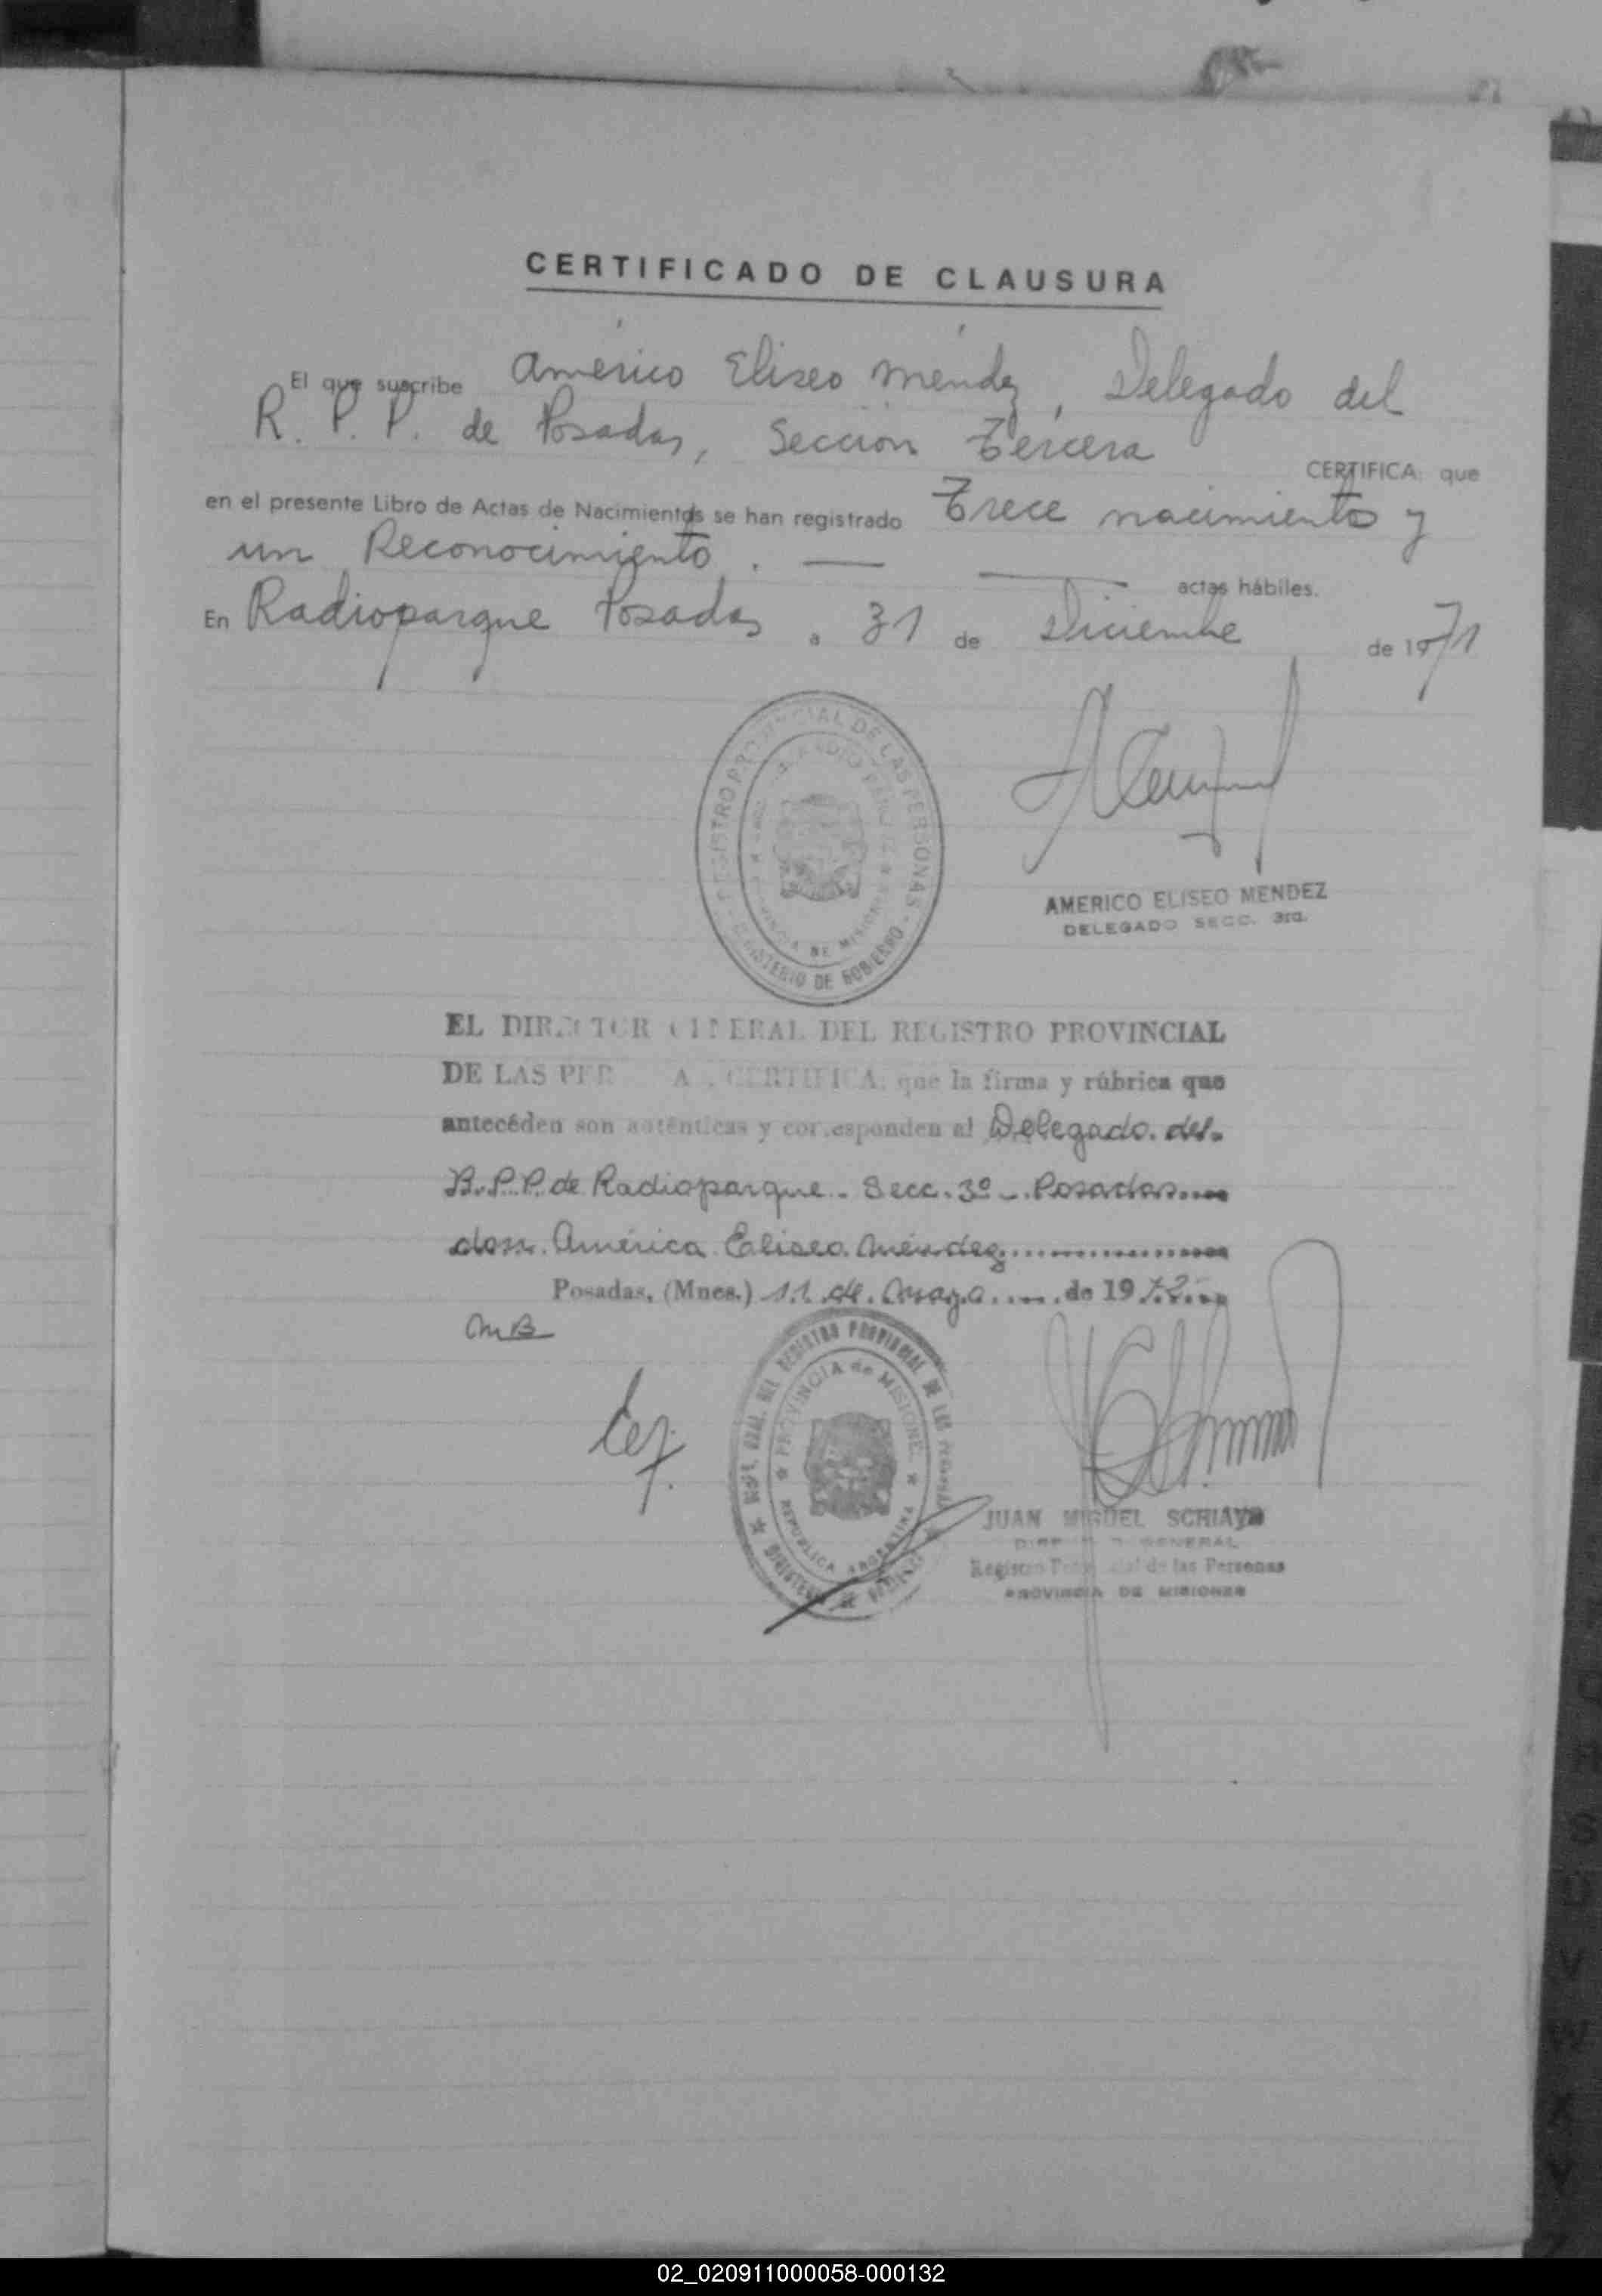 CERTIFICADO DE CLAUSURA
El que suscribe Américo Eliseo Méndez, Delegado del
R. P. P. de Posadas, Sección Tercera CERTIFICA: que
en el presente Libro de Actas de Nacimientos se han registrado Trece nacimiento y
un Reconocimiento. — — actas hábiles.
En Radioparque Posadas a 31 de Diciembre de 1971
REGISTRO PROVINCIAL DE LAS PERSONAS
MINISTERIO DE GOBIERNO
PROVINCIA DE MISIONES
AMERICO ELISEO MENDEZ
DELEGADO SECC. 3ra.
EL DIRECTOR GENERAL DEL REGISTRO PROVINCIAL
DE LAS PER A . CERTIFICA: que la firma y rúbrica que
antecéden son auténticas y cor.esponden al Delegado del
R.P.P. de Radioparque - Secc. 3º - Posadas
don Américo Eliseo Méndez
Posadas, (Mnes.) 11 de Mayo de 1972
MB
DEL REGISTRO PROVINCIAL DE LAS
PROVINCIA de MISIONES
REPUBLICA ARGENTINA
JUAN MIGUEL SCHIAVO
DIRECTOR GENERAL
Registro Provincial de las Personas
PROVINCIA DE MISIONES
02_020911000058-000132